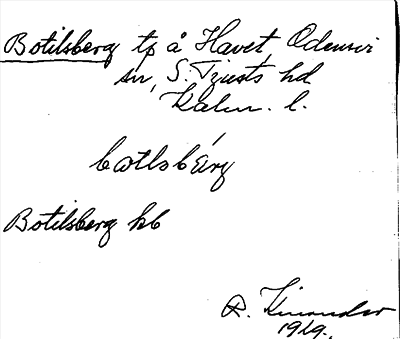 Botilsberg tp å Havet, Odensvi
sn, S. Tjusts hd
Kalm. l.
bᴏtlsbärg
Botilsberg hb
R. Kinander
1919.